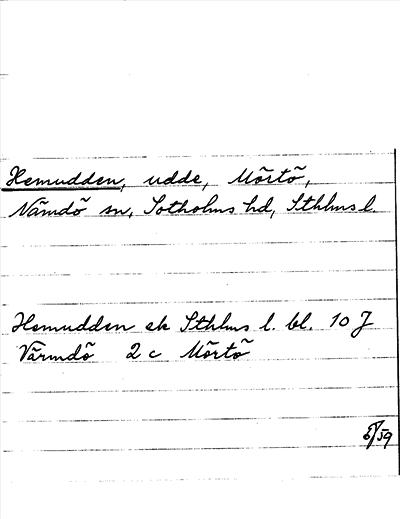 Hemudden, udde, Mörtö,
Nämdö sn, Sotholms hd, Sthlms l.
Hemudden ek Sthlms l. bl. 10 J
Värmdö 2 c Mörtö
/59